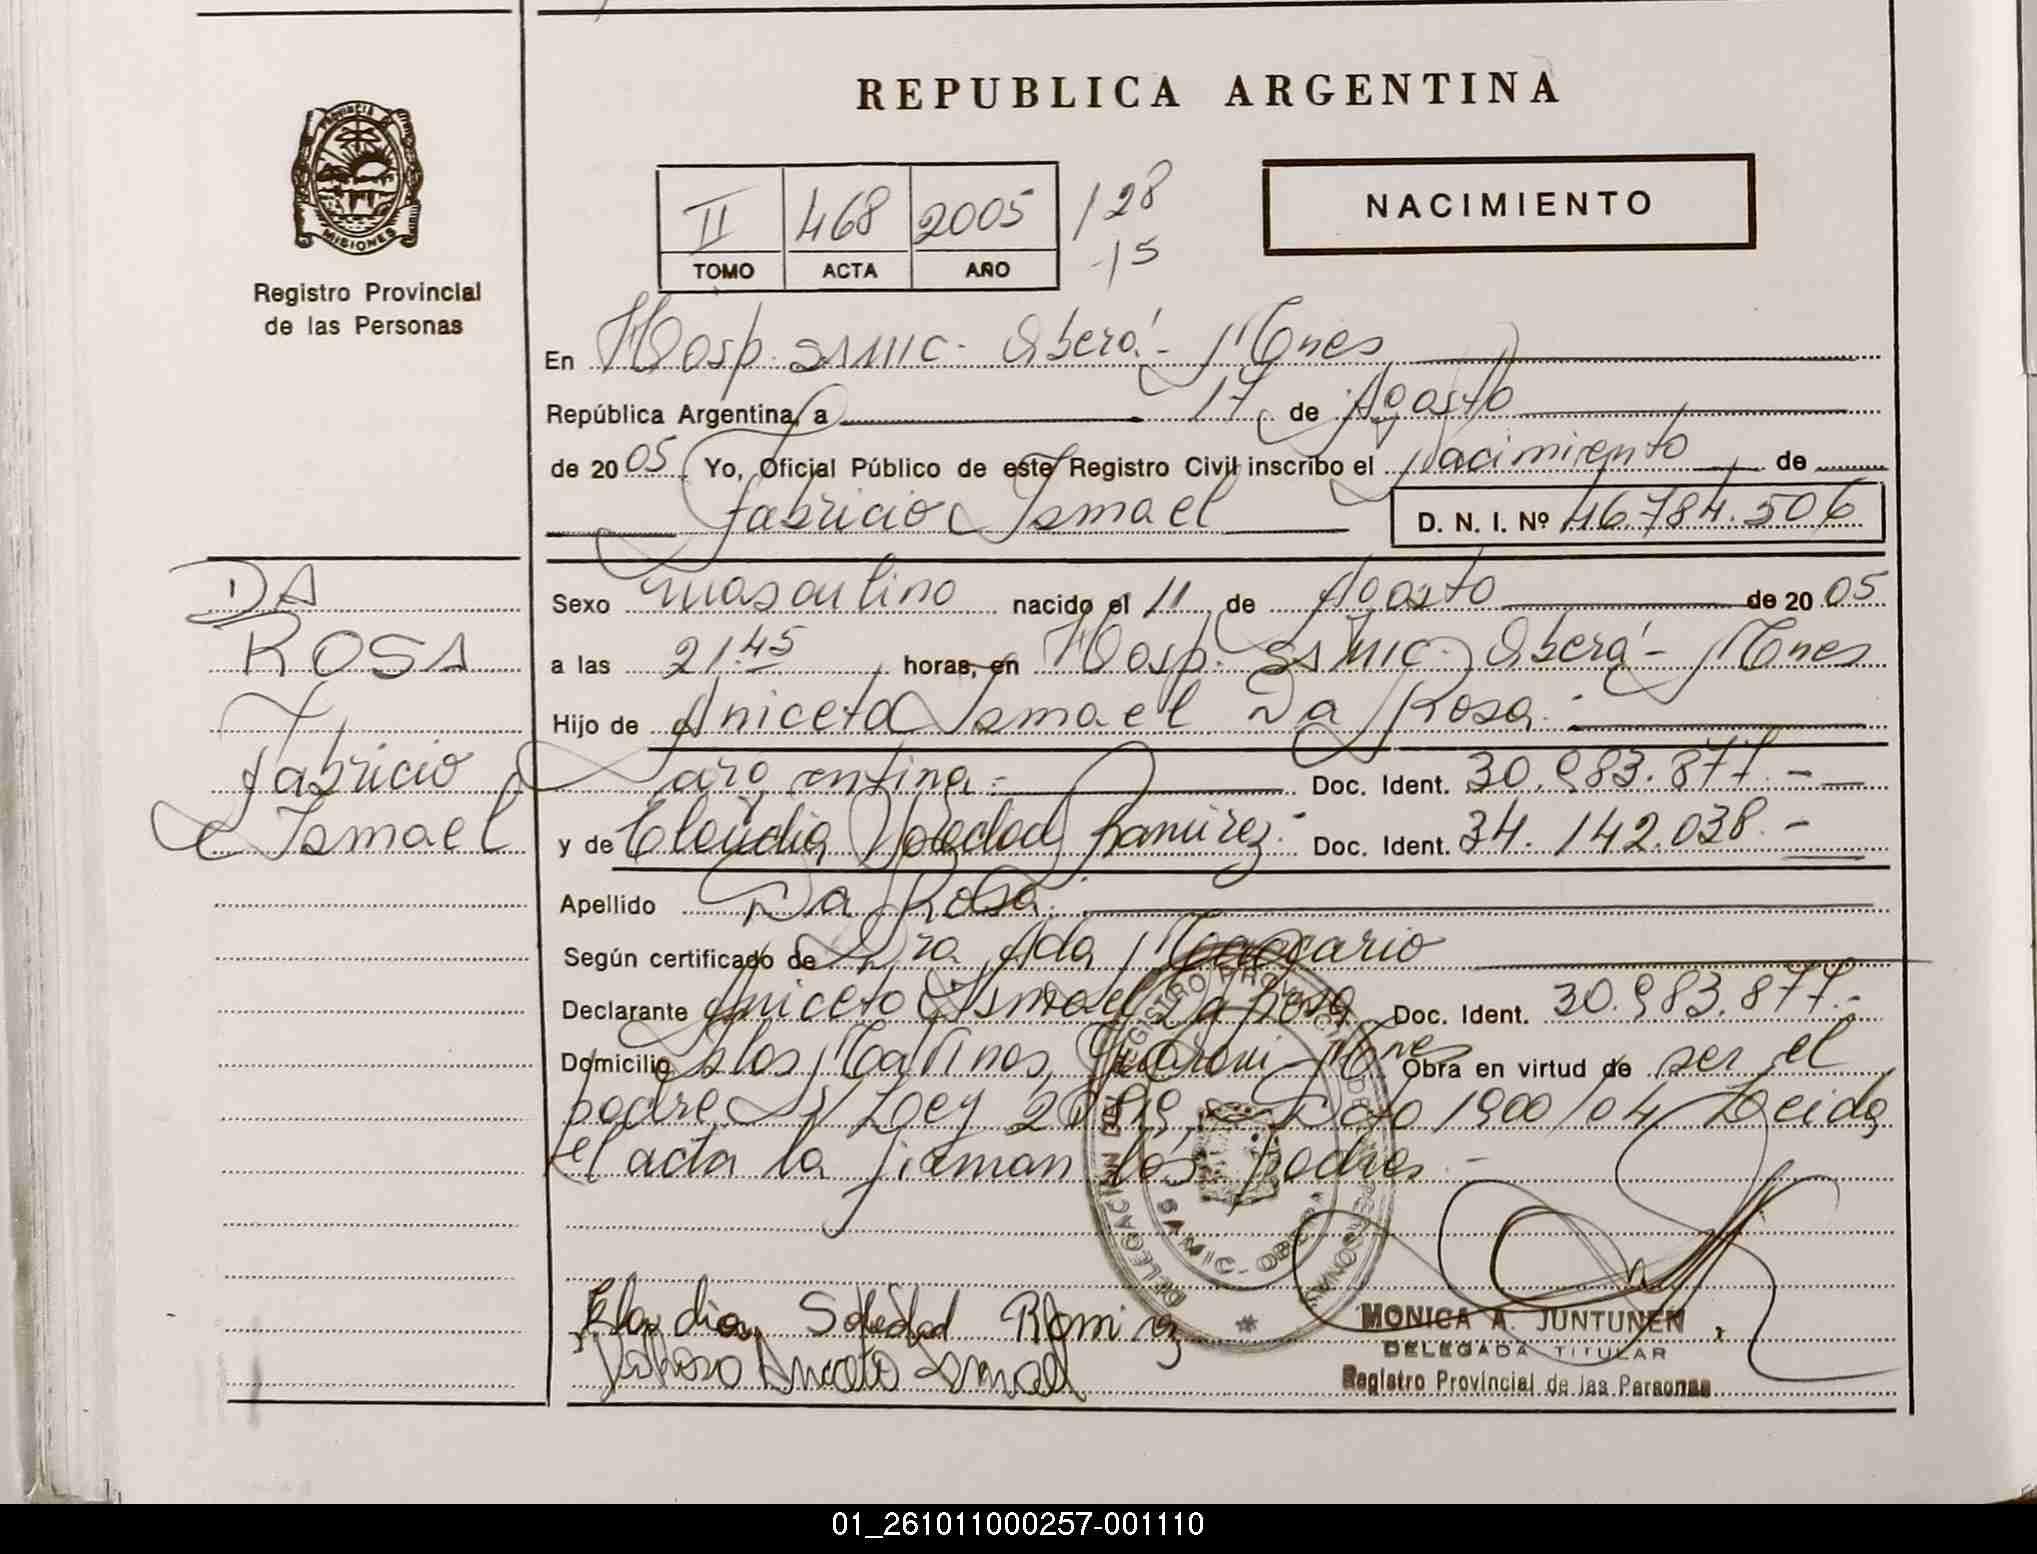 REPUBLICA ARGENTINA
PROVINCIA
MISIONES
Registro Provincial
de las Personas
II 468 2005 128
TOMO ACTA AÑO -15
NACIMIENTO
En Hosp. SAMIC. Oberá - Mnes
República Argentina, a 17 de Agosto
de 2005 Yo, Oficial Público de este Registro Civil inscribo el Nacimiento de
Fabricio Ismael D. N. I. Nº 46.784.506
DA
ROSA
Fabricio
Ismael
Sexo masculino nacido el 11 de Agosto de 2005
a las 21.45 horas, en Hosp. SAMIC. Oberá - Mnes
Hijo de Aniceto Ismael Da Rosa.-
argentina.- Doc. Ident. 30.983.877.-
y de Claudia Soledad Ramirez.- Doc. Ident. 34.142.038.-
Apellido Da Rosa.
Según certificado de Dra. Ada
Declarante Aniceto Ismael Da Rosa Doc. Ident. 30.983.877.-
Domicilio Islas Malvinas, Guaraní - Mnes Obra en virtud de ser el
padre S/ Ley Dcto 1900/04 Leida
el acta la firman los padres.-
DELEGACION
SAMIC - OBERA
Claudia Soledad Ramirez
Aniceto Ismael
MONICA A. JUNTUNEN
DELEGADA TITULAR
Registro Provincial de las Personas
01_261011000257-001110